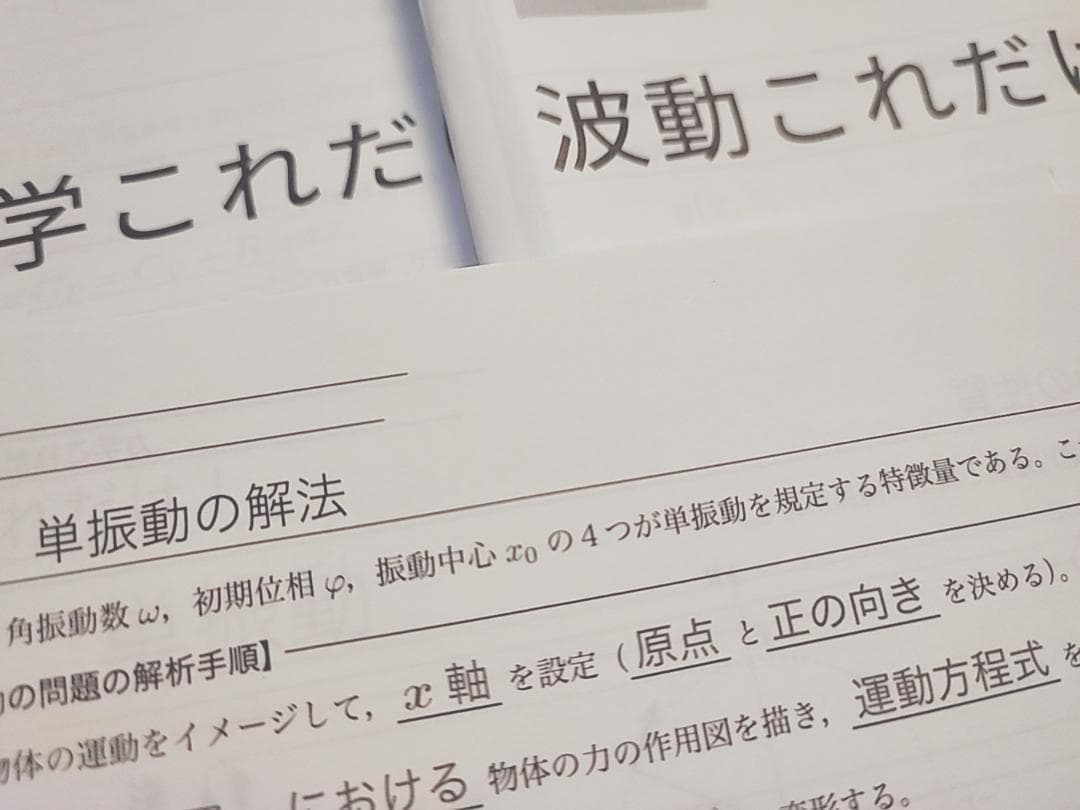 学これだ
波動これだけ
単振動の解法
角振動数ω, 初期位相φ, 振動中心x₀の4つが単振動を規定する特徴量である。こ
の問題の解析手順】
物体の運動をイメージして, x軸 を設定（原点 と 正の向き を決める）。
における 物体の力の作用図を描き, 運動方程式 を
変形する。